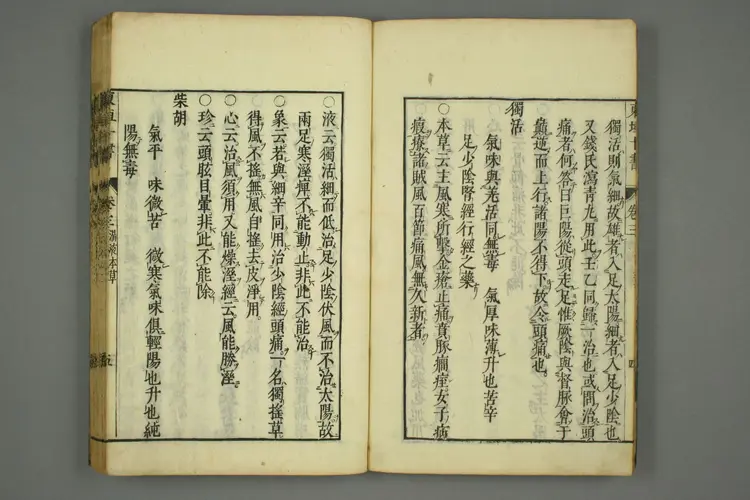 獨活則氣細故雄者入足太陽細者入足少陰也
又錢氏瀉青丸用此壬乙同歸一治也或問治頭
痛者何答曰巨陽從頭走足惟厥陰與督脉會于
巔逆而上行諸陽不得下故令頭痛也
獨活
氣味與羌活同無毒 氣厚味薄升也苦辛
足少陰腎經行經之藥
○本草云主風寒所擊金瘡止痛賁豚癇痓女子疝
瘕療諸賊風百節痛風無久新者
東垣十書 卷三
四
○液云獨活細而低治足少陰伏風而不治太陽故
兩足寒溼痺不能動止非此不能治
○象云若與細辛同用治少陰經頭痛一名獨搖草
得風不搖無風自搖去皮淨用
○心云治風須用又能燥溼經云風能勝溼
○珍云頭眩目暈非此不能除
柴胡
氣平 味微苦 微寒氣味俱輕陽也升也純
陽無毒
東垣十書 卷三湯液本草
五